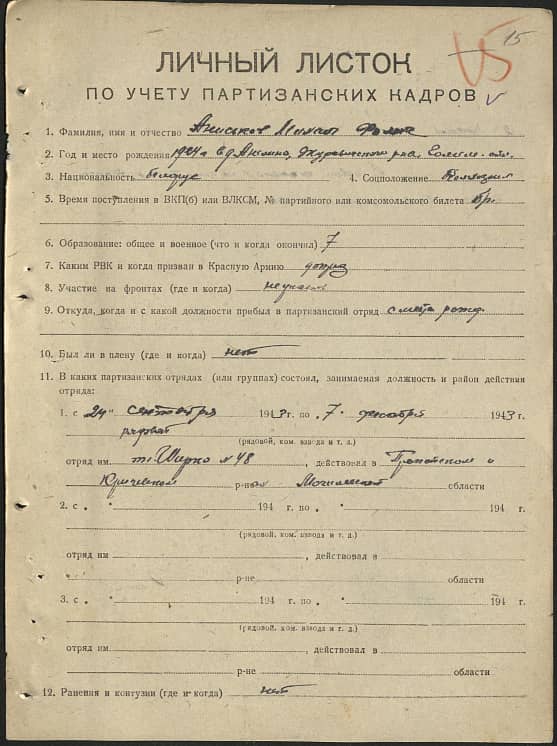 15
ЛИЧНЫЙ ЛИСТОК
ПО УЧЕТУ ПАРТИЗАНСКИХ КАДРОВ
1. Фамилия, имя и отчество
2. Год и место рождения 1924
3. Национальность белорус 4. Соцположение
5. Время поступления в ВКП(б) или ВЛКСМ, № партийного или комсомольского билета
6. Образование: общее и военное (что и когда окончил) 7
7. Каким РВК и когда призван в Красную Армию
8. Участие на фронтах (где и когда)
9. Откуда, когда и с какой должности прибыл в партизанский отряд с места рожд.
10. Был ли в плену (где и когда) нет
11. В каких партизанских отрядах (или группах) состоял, занимаемая должность и район действия
отряда:
1. с 24" сентября 1943 г. по „7" декабря 1943 г.
рядовой
(рядовой, ком. взвода и т. д.)
отряд им. № 48, действовал в Пропойском и
Кричевском р-нах Могилевской области
2. с „ " 194 г. по „ " 194 г.
(рядовой, ком. взвода и т. д.)
отряд им. , действовал в
р-не области
3. с „ " 194 г. по „ " 194 г.
(рядовой, ком. взвода и т. д.)
отряд им. , действовал в
р-не области
12. Ранения и контузии (где и когда) нет